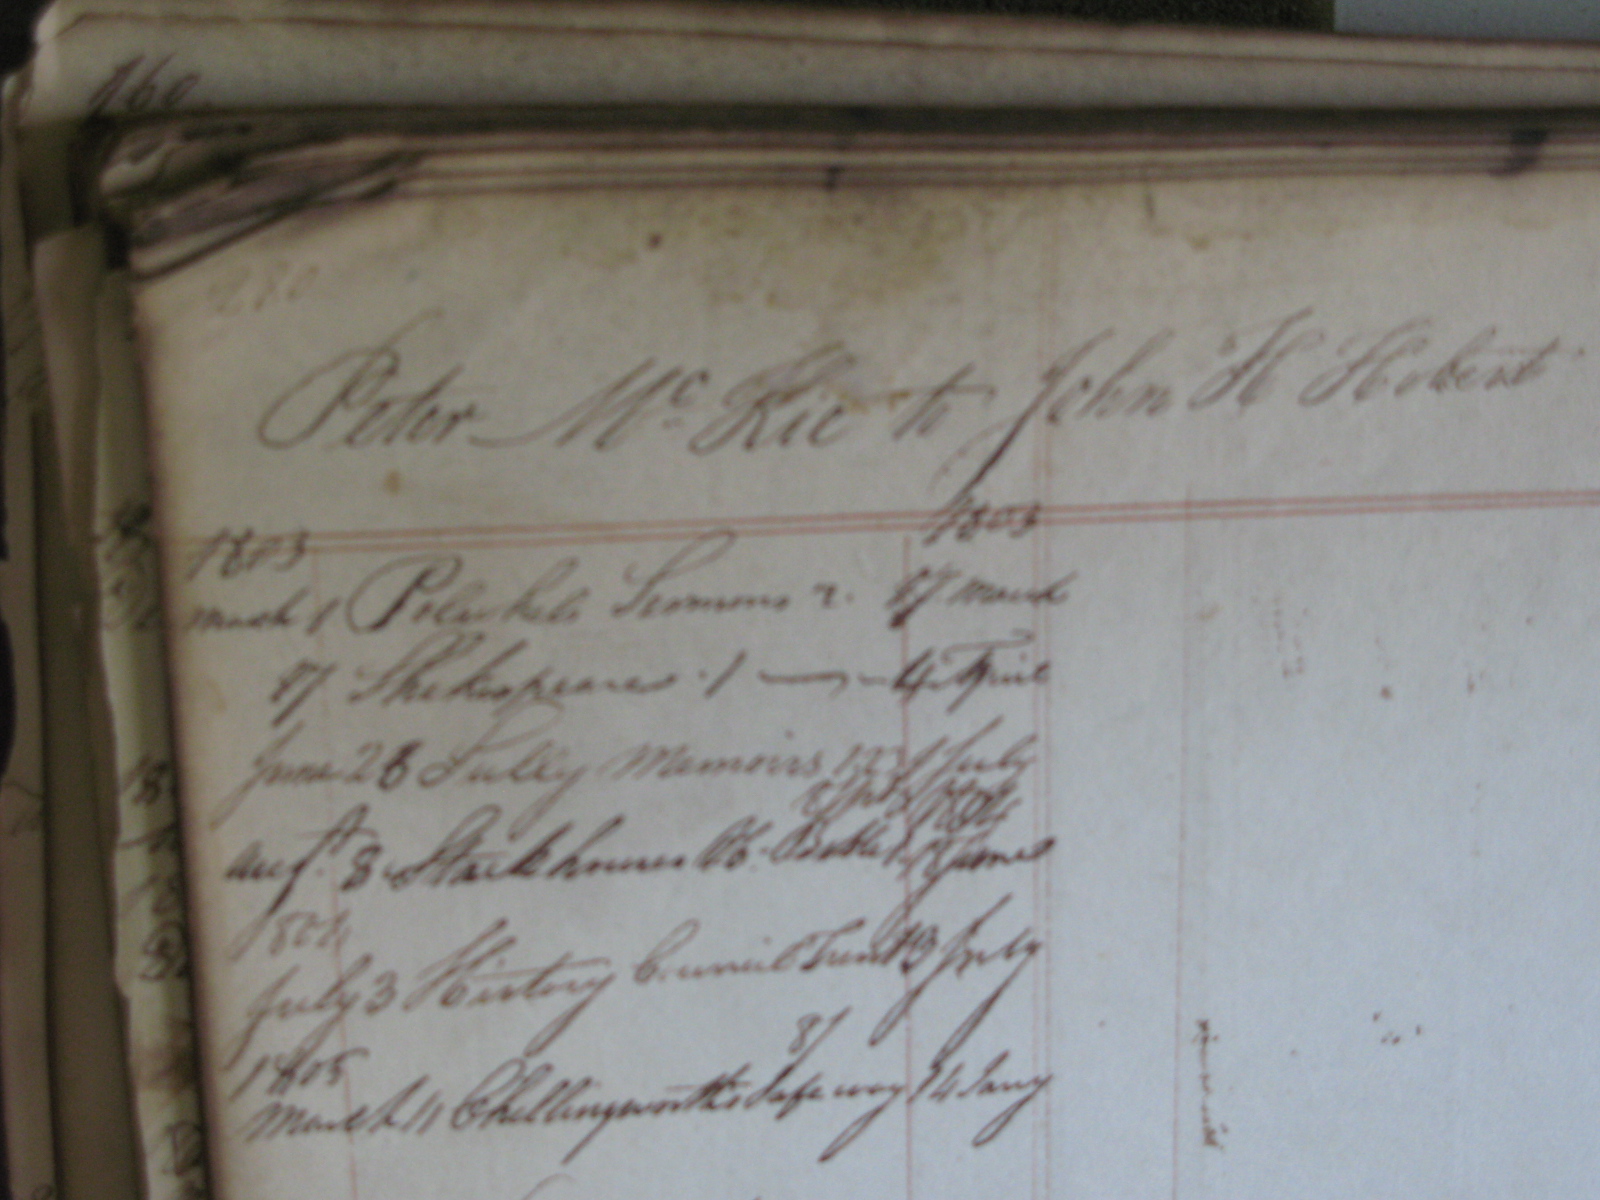 160
230
Peter McKie to John H Hobert
1803 1803
March 1 Sermons 2. 17 March
17 Shekespeares 1 4 April
June 28 Sully Memoirs 1 July
1804
Augt. 8 Stackhouses Hb. Bible
1804
July 3 History Council Trent 13 July
1805
March 11 Chellingworth's Safe way 14 Jany